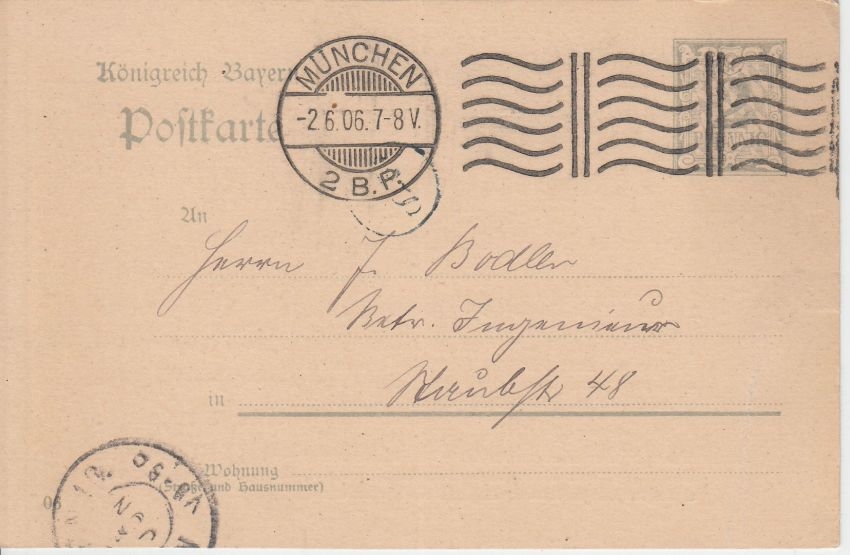 Königreich Bayern
Postkarte
MÜNCHEN
-2.6.06.7-8V.
2 B.P.
An
Herrn J. Bodler
Betr. Ingenieur
Staubstr 48
in
Wohnung
(Straße und Hausnummer)
06